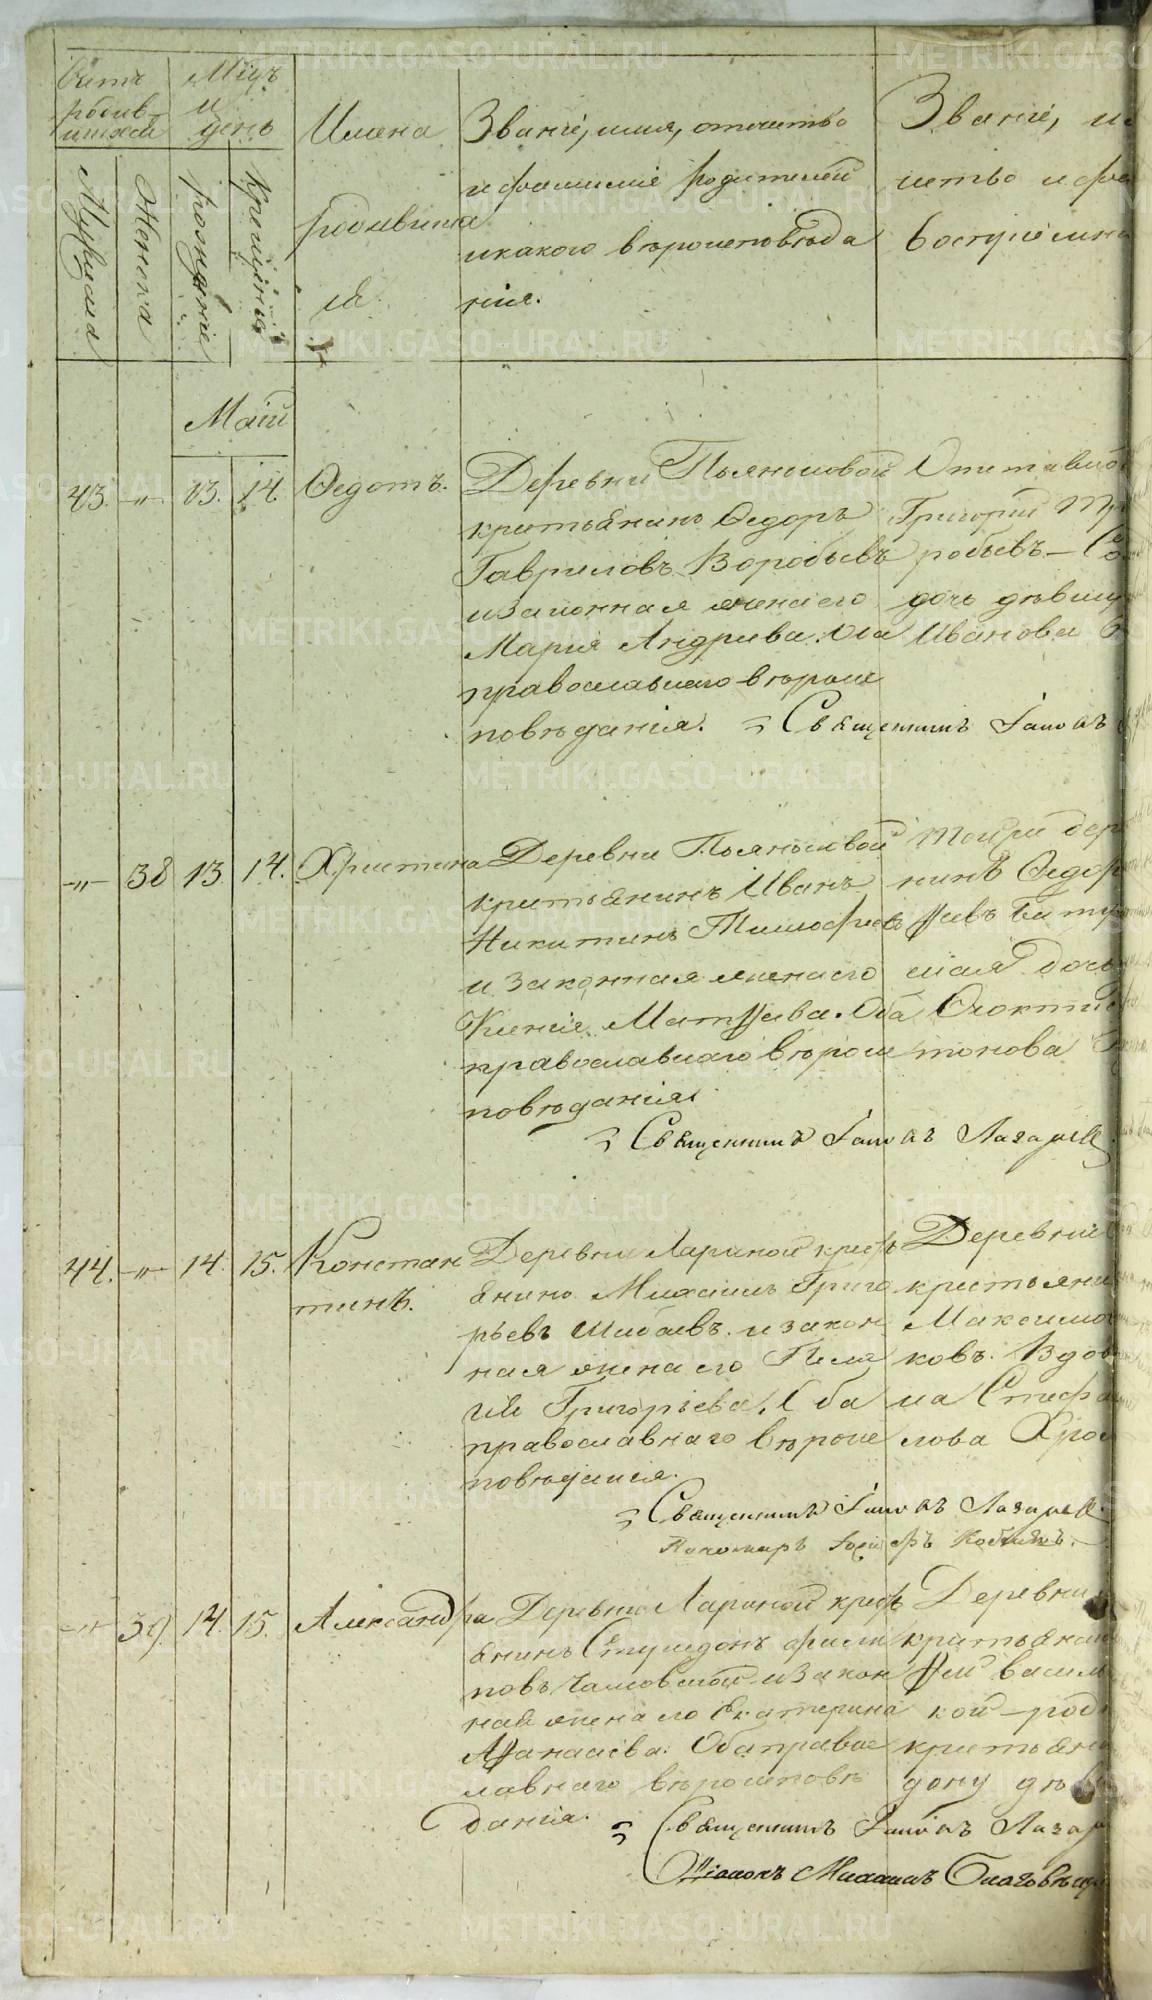 Счетъ родив-шихся
Мцъ и день
Мужеска
Женска
рожденіе
Крещенія
Имена родивших ся
Званіе, имя, отчество
и фамиліе родителей
и какого вѣроисповѣда
нія.
Званіе, и
чество и фа
воспріемни
Маій
43. -"- 13. 14. Ѳедотъ.
Деревни Пьянковой
крестьянинъ Ѳедоръ
Гавриловъ Воробьевъ
и законная жена его
Марія Андреева. Оба
православнаго вѣроис
повѣданія.
Отставной
Григорій
робьевъ —
дочь дѣвица
Иванова
Священникъ Іаковъ
-"- 38 13. 14. Христина
Деревни Пьянковой
крестьянинъ Иванъ
Никитинъ Тимофеевъ
и законная жена его
Ксенія Матѳѣева. Оба
православнаго вѣроис
повѣданія
Тойже дер
нинъ Ѳедоръ
дочь
Священникъ Іаковъ Лазаревъ
44. -"- 14. 15. Констан
тинъ.
Деревни Лариной крест
янинъ Михаилъ Григо
рьевъ Шибаевъ и закон
ная жена его Пела
гія Григорьева. Оба
православнаго вѣроис
повѣданія.
Деревни
крестьяни
Максимо
ковъ. Вдов
на Стефа
лова
Священникъ Іаковъ Лазаревъ
Пономарь
-"- 39. 14. 15. Александра
Деревни Лариной крест
янинъ Спиридонъ Фили
повъ и закон
ная жена его Екатерина
Аѳанасіева. Оба правос
лавнаго вѣроисповѣ
данія.
Деревни
крестьянин
ѳей Василь
кой —
крестьян
дону дѣв
Священникъ Іаковъ Лазар
Діаконъ Михаилъ Благовѣщ
METRIKI.GASO-URAL.RU